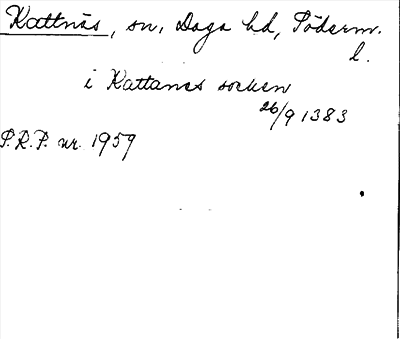 Kattnäs, sn, Daga hd, Söderm.
l.
i Kattanes socken
26/9 1383
P.R.P. nr. 1959